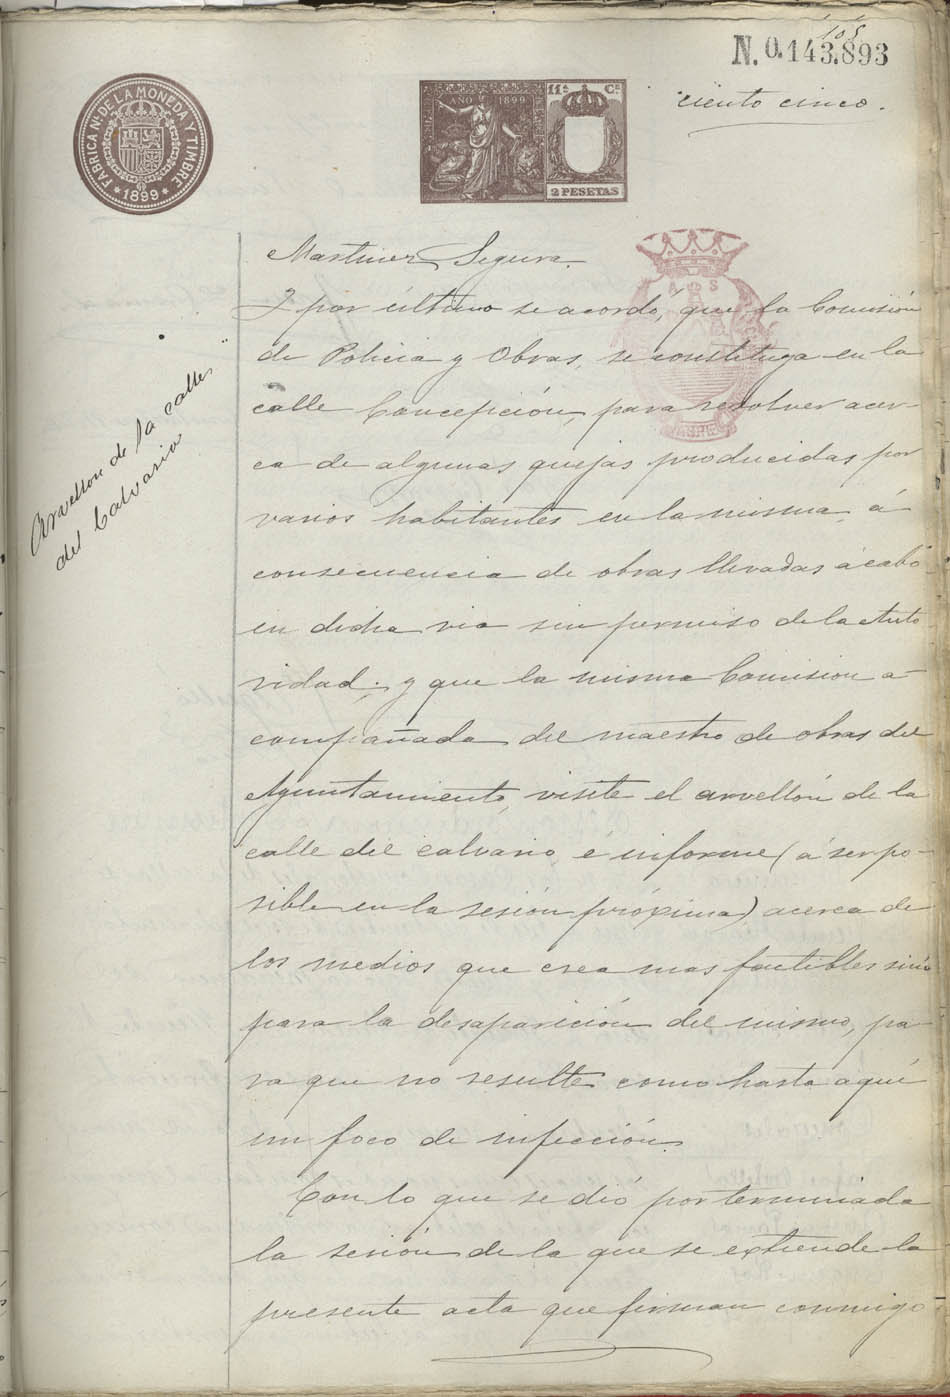 105
N. 0.143.893
ciento cinco.
FABRICA Nº. DE LA MONEDA Y TIMBRE
* 1899 *
AÑO 1899
11ª Cª
2 PESETAS
Martinez Segura.
Y por último se acordo, que la Comisión
de Policia y Obras, se constituya en la
calle Concepción, para resolver acer-
ca de algunas quejas producidas por
varios habitantes en la misma, á
consecuencia de obras llevadas á cabo
en dicha via sin permiso de la Auto
ridad; y que la misma Comision a-
compañada del maestro de obras del
Ayuntamiento, visite el arvellón de la
calle del calvario, é informe (á ser po-
sible en la sesión próxima) acerca de
los medios que crea mas factibles
para la desaparición del mismo, pa-
ra que no resulte como hasta aquí
un foco de infección.
Con lo que se dió por terminada
la sesión de la que se extiende la
presente acta que firman conmigo
Arvellon de la calle
del Calvario